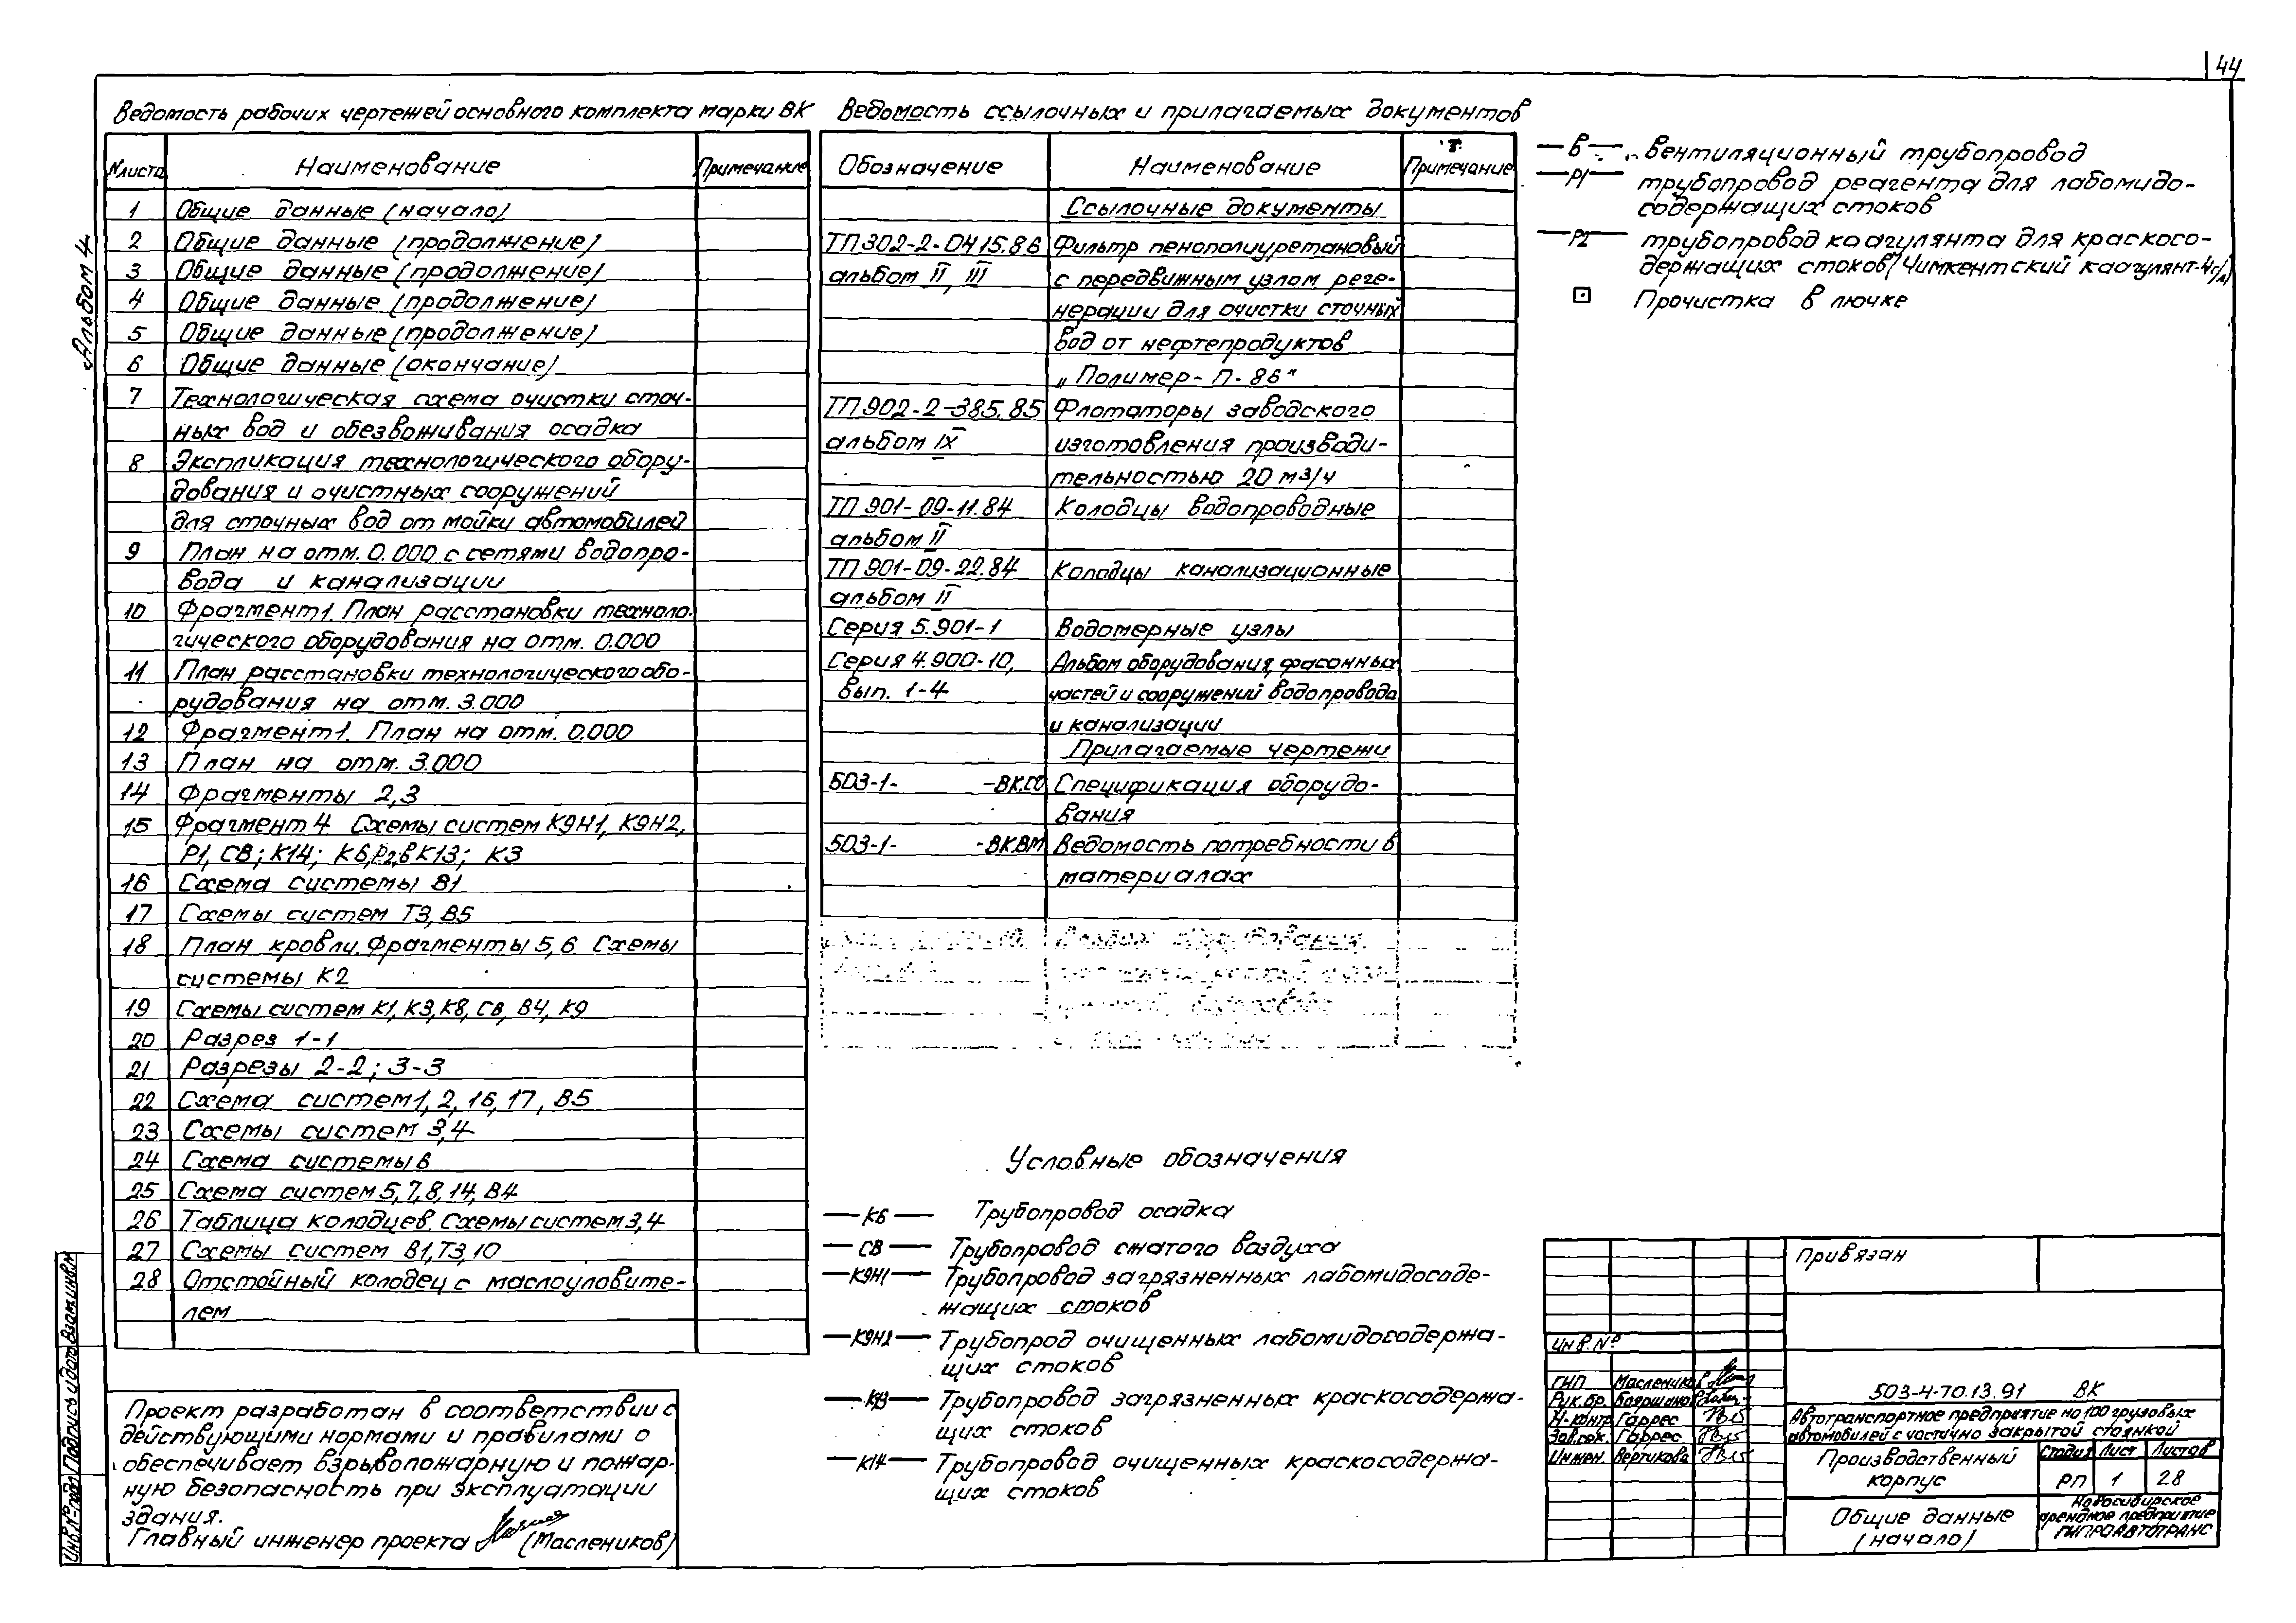 44
Альбом 4
Ведомость рабочих чертежей основного комплекта марки ВК
N листа Наименование Примечание
1 Общие данные (начало)
2 Общие данные (продолжение)
3 Общие данные (продолжение)
4 Общие данные (продолжение)
5 Общие данные (продолжение)
6 Общие данные (окончание)
7 Технологическая схема очистки сточ-
ных вод и обезвоживания осадка
8 Экспликация технологического обору-
дования и очистных сооружений
для сточных вод от мойки автомобилей
9 План на отм. 0.000 с сетями водопро-
вода и канализации
10 Фрагмент 1. План расстановки техноло-
гического оборудования на отм. 0.000
11 План расстановки технологического обо-
рудования на отм. 3.000
12 Фрагмент 1. План на отм. 0.000
13 План на отм. 3.000
14 Фрагменты 2,3
15 Фрагмент 4. Схемы систем К9Н1, К9Н2,
Р1, СВ; К14; К6, Р2, в К13; К3
16 Схема системы В1
17 Схемы систем Т3, В5
18 План кровли. Фрагменты 5,6. Схемы
системы К2
19 Схемы систем К1, К3, К8, СВ, В4, К9
20 Разрез 1-1
21 Разрезы 2-2; 3-3
22 Схема систем 1, 2, 16, 17, В5
23 Схемы систем 3,4
24 Схема системы в
25 Схема систем 5, 7, 8, 14, В4
26 Таблица колодцев. Схемы систем 3,4
27 Схемы систем В1, Т3, 10
28 Отстойный колодец с маслоуловите-
лем
Проект разработан в соответствии с
действующими нормами и правилами и
обеспечивает взрывопожарную и пожар-
ную безопасность при эксплуатации
здания.
Главный инженер проекта (Маслеников)
Ведомость ссылочных и прилагаемых документов
Обозначение Наименование Примечание
Ссылочные документы
ТП 302-2-0415.86 Фильтр пенополиуретановый
альбом II, III с передвижным узлом реге-
нерации для очистки сточных
вод от нефтепродуктов
„Полимер-П-86"
ТП 902-2-385.85 Флотаторы заводского
альбом IX изготовления производи-
тельностью 20 м3/ч
ТП 901-09-11.84 Колодцы водопроводные
альбом II
ТП 901-09-22.84 Колодцы канализационные
альбом II
Серия 5.901-1 Водомерные узлы
Серия 4.900-10, Альбом оборудования, фасонных
вып. 1-4 частей и сооружений водопровода
и канализации
Прилагаемые чертежи
503-1- -ВК.СО Спецификация оборудо-
вания
503-1- -ВК.ВМ Ведомость потребности в
материалах
Условные обозначения
К6 Трубопровод осадка
СВ Трубопровод сжатого воздуха
К9Н1 Трубопровод загрязненных лабомидосоде-
жащих стоков
К9Н2 Трубопрод очищенных лабомидосодержа-
щих стоков
К13 Трубопровод загрязненных краскосодержа-
щих стоков
К14 Трубопровод очищенных краскосодержа-
щих стоков
В Вентиляционный трубопровод
Р1 трубопровод реагента для лабомидо-
содержащих стоков
Р2 трубопровод коагулянта для краскосо-
держащих стоков (Чимкентский коагулянт-4г/л)
Прочистка в лючке
Привязан
Инв. №
ГИП Маслеников
Рук. бр.
Н-контр Гаррес
Зав. сек. Гаррес
Инжен. Вертикова
503-4-70.13.91 ВК
Автотранспортное предприятие на 100 грузовых
автомобилей с частично закрытой стоянкой
Производственный
корпус
Стадия Лист Листов
РП 1 28
Общие данные
(начало)
Новосибирское
арендное предприятие
ГИПРОАВТОТРАНС
Инв. № подл Подпись и дата Взам. инв. №